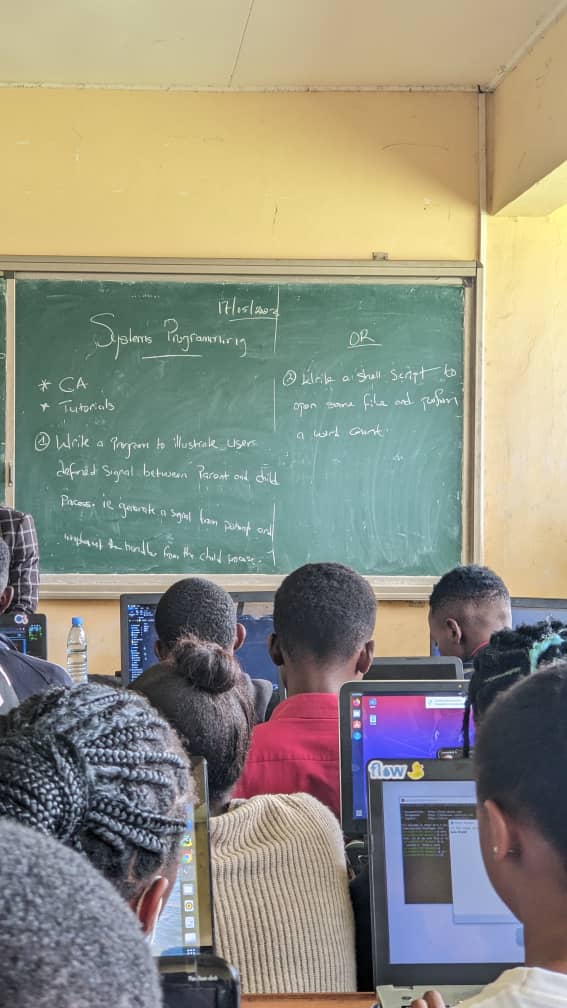 17/05/202
Systems Programming
* CA
* Tutorials
① Write a Program to illustrate User
defined Signal between Parent and child
Process. ie generate a signal from parent and
implement the handler from the child process.
OR
② Write a shell Script to
open some file and perform
a word count.
flow